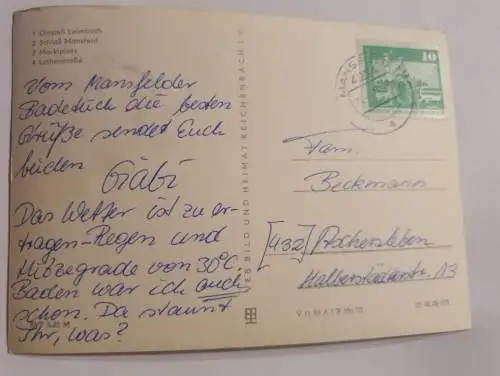 1 Ortsteil Leimbach
2 Schloß Mansfeld
3 Marktplatz
4 Lutherstraße
Vom Mansfelder
Badetuch die besten
Grüße sendet Euch
beiden
Gabi
Das Wetter ist zu er-
tragen-Regen und
Hitzegrade von 30°C.
Baden war ich auch
schon. Da staunt
Ihr, was?
VEB BILD UND HEIMAT REICHENBACH
MANS
10
Fam.
Beckmann
[432] Aschersleben
Halberstädterstr. 13